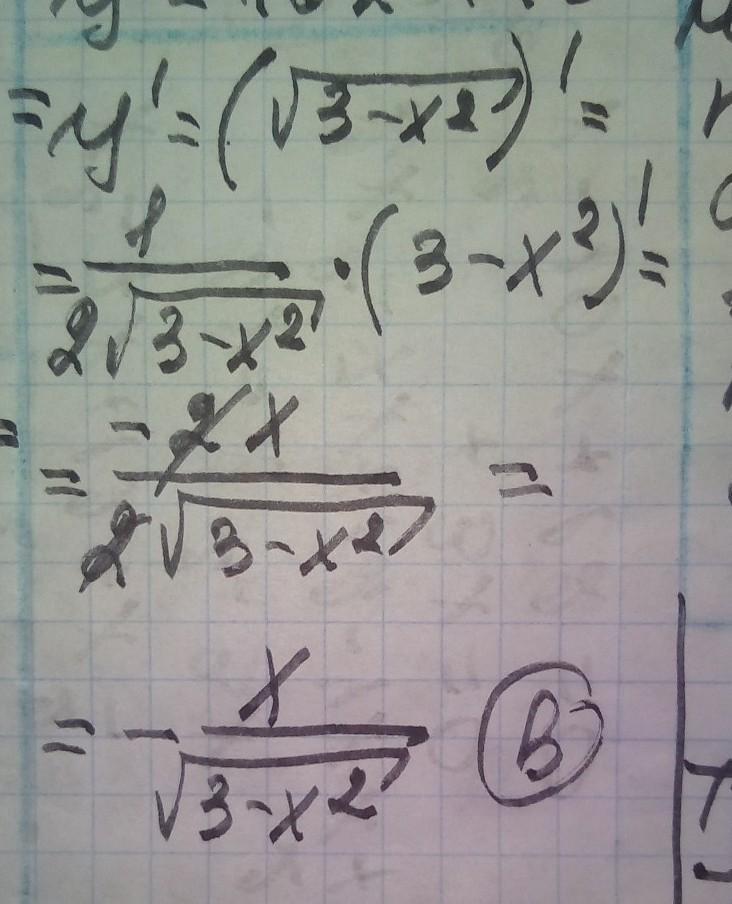 = y' = (√3-x²)' =
= 1/2√3-x² · (3-x²)' =
= -2x/2√3-x² =
= - x/√3-x² В